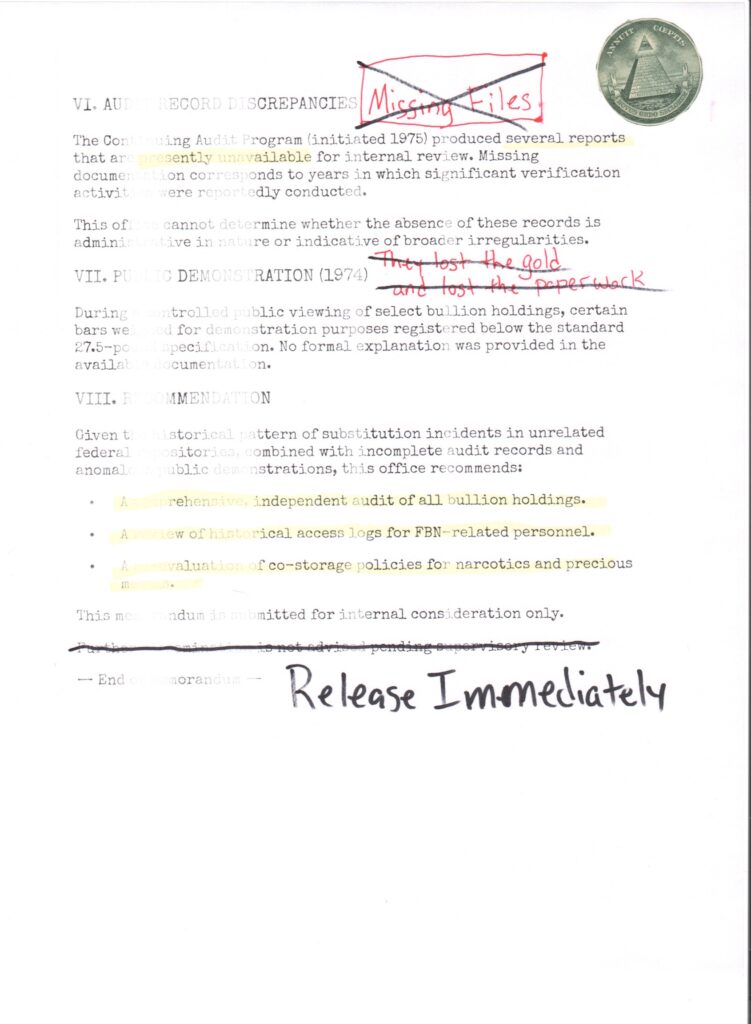 ANNUIT CŒPTIS
VI. AUDIT RECORD DISCREPANCIES
Missing Files
The Continuing Audit Program (initiated 1975) produced several reports
that are presently unavailable for internal review. Missing
documentation corresponds to years in which significant verification
activities were reportedly conducted.
This office cannot determine whether the absence of these records is
administrative in nature or indicative of broader irregularities.
They lost the gold
VII. PUBLIC DEMONSTRATION (1974)
and lost the paperwork
During a controlled public viewing of select bullion holdings, certain
bars weighed for demonstration purposes registered below the standard
27.5-pound specification. No formal explanation was provided in the
available documentation.
VIII. RECOMMENDATION
Given the historical pattern of substitution incidents in unrelated
federal depositories, combined with incomplete audit records and
anomalous public demonstrations, this office recommends:
• A comprehensive, independent audit of all bullion holdings.
• A review of historical access logs for FBN-related personnel.
• A reevaluation of co-storage policies for narcotics and precious
metals.
This memorandum is submitted for internal consideration only.
Further is not advised pending supervisory review.
— End of memorandum —
Release Immediately